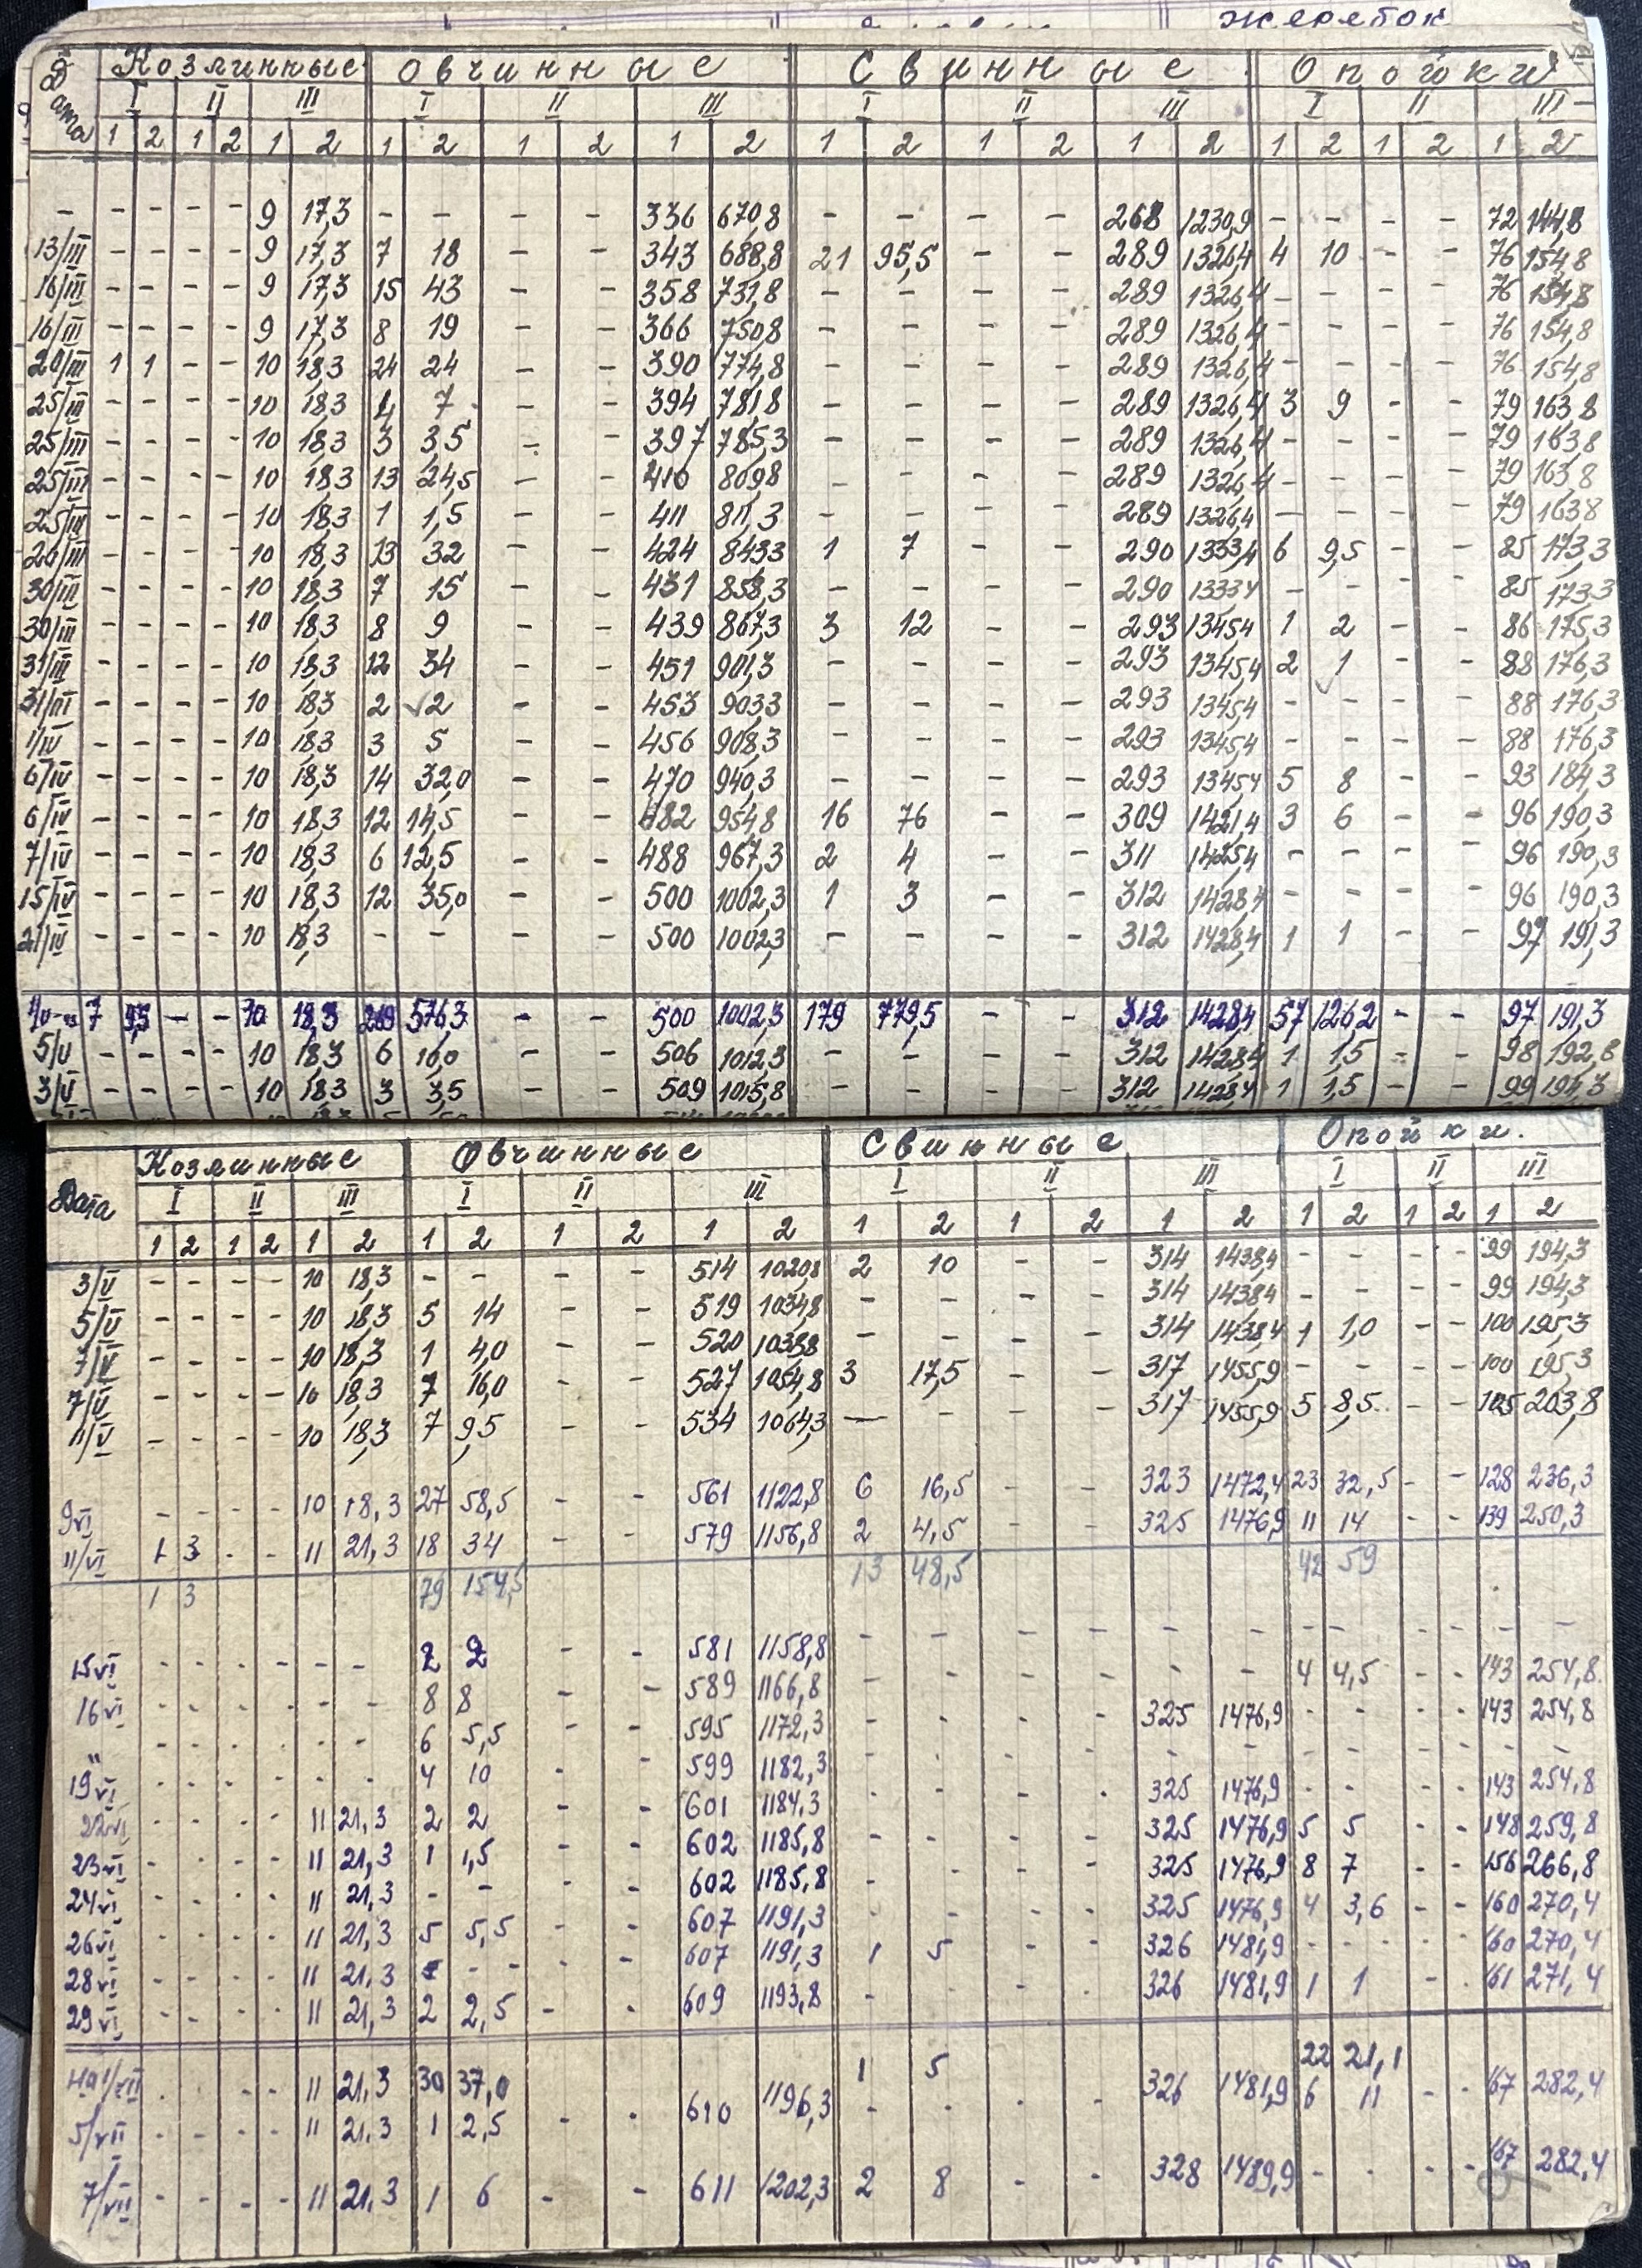 жеребок
Дата Козлинные Овчинные Свинные Опойки
I II III I II III I II III I II III
1 2 1 2 1 2 1 2 1 2 1 2 1 2 1 2 1 2 1 2 1 2 1 2
- - - - - 9 17,3 - - - - 336 670,8 - - - - 268 1230,9 - - - - 72 144,8
13/III - - - - 9 17,3 7 18 - - 343 688,8 21 95,5 - - 289 1326,4 4 10 - - 76 154,8
16/III - - - - 9 17,3 15 43 - - 358 731,8 - - - - 289 1326,4 - - - - 76 154,8
16/III - - - - 9 17,3 8 19 - - 366 750,8 - - - - 289 1326,4 - - - - 76 154,8
20/III 1 1 - - 10 18,3 24 24 - - 390 774,8 - - - - 289 1326,4 - - - - 76 154,8
25/III - - - - 10 18,3 4 7 - - 394 781,8 - - - - 289 1326,4 3 9 - - 79 163,8
25/III - - - - 10 18,3 3 3,5 - - 397 785,3 - - - - 289 1326,4 - - - - 79 163,8
25/III - - - - 10 18,3 13 24,5 - - 410 809,8 - - - - 289 1326,4 - - - - 79 163,8
25/III - - - - 10 18,3 1 1,5 - - 411 811,3 - - - - 289 1326,4 - - - - 79 163,8
26/III - - - - 10 18,3 13 32 - - 424 843,3 1 7 - - 290 1333,4 6 9,5 - - 85 173,3
30/III - - - - 10 18,3 7 15 - - 431 858,3 - - - - 290 1333,4 - - - - 85 173,3
30/III - - - - 10 18,3 8 9 - - 439 867,3 3 12 - - 293 1345,4 1 2 - - 86 175,3
31/III - - - - 10 18,3 12 34 - - 451 901,3 - - - - 293 1345,4 2 1 - - 88 176,3
31/III - - - - 10 18,3 2 ✓2 - - 453 903,3 - - - - 293 1345,4 - ✓ - - - 88 176,3
1/IV - - - - 10 18,3 3 5 - - 456 908,3 - - - - 293 1345,4 - - - - 88 176,3
6/IV - - - - 10 18,3 14 32,0 - - 470 940,3 - - - - 293 1345,4 5 8 - - 93 184,3
6/IV - - - - 10 18,3 12 14,5 - - 482 954,8 16 76 - - 309 1421,4 3 6 - - 96 190,3
7/IV - - - - 10 18,3 6 12,5 - - 488 967,3 2 4 - - 311 1425,4 - - - - 96 190,3
15/IV - - - - 10 18,3 12 35,0 - - 500 1002,3 1 3 - - 312 1428,4 - - - - 96 190,3
21/IV - - - - 10 18,3 - - - - 500 1002,3 - - - - 312 1428,4 1 1 - - 97 191,3
7 9,5 - - 10 18,3 269 576,3 - - 500 1002,3 179 779,5 - - 312 1428,4 57 126,2 - - 97 191,3
5/V - - - - 10 18,3 6 10,0 - - 506 1012,3 - - - - 312 1428,4 1 1,5 - - 98 192,8
3/V - - - - 10 18,3 3 3,5 - - 509 1015,8 - - - - 312 1428,4 1 1,5 - - 99 194,3
Дата Козлинные Овчинные Свинные Опойки.
I II III I II III I II III I II III
1 2 1 2 1 2 1 2 1 2 1 2 1 2 1 2 1 2 1 2 1 2 1 2
3/V - - - - 10 18,3 - - - - 514 1020,8 2 10 - - 314 1438,4 - - - - 99 194,3
5/V - - - - 10 18,3 5 14 - - 519 1034,8 - - - - 314 1438,4 - - - - 99 194,3
7/V - - - - 10 18,3 1 4,0 - - 520 1038,8 - - - - 314 1438,4 1 1,0 - - 100 195,3
7/V - - - - 10 18,3 7 16,0 - - 527 1054,8 3 17,5 - - 317 1455,9 - - - - 100 195,3
11/V - - - - 10 18,3 7 9,5 - - 534 1064,3 - - - - 317 1455,9 5 8,5 - - 105 203,8
9 VI - - - - 10 18,3 27 58,5 - - 561 1122,8 6 16,5 - - 323 1472,4 23 32,5 - - 128 236,3
11/VI 1 3 - - 11 21,3 18 34 - - 579 1156,8 2 4,5 - - 325 1476,9 11 14 - - 139 250,3
1 3 79 154,5 13 48,5 42 59
15 VI - - - - - - 2 2 - - 581 1158,8 - - - - - - - - - - - -
16 VI - - - - - - 8 8 - - 589 1166,8 - - - - - - 4 4,5 - - 143 254,8
" - - - - - - 6 5,5 - - 595 1172,3 - - - - 325 1476,9 - - - - 143 254,8
19 VI - - - - - - 4 10 - - 599 1182,3 - - - - - - - - - - - -
22 VI - - - - 11 21,3 2 2 - - 601 1184,3 - - - - 325 1476,9 - - - - 143 254,8
23 VI - - - - 11 21,3 1 1,5 - - 602 1185,8 - - - - 325 1476,9 5 5 - - 148 259,8
24 VI - - - - 11 21,3 - - - - 602 1185,8 - - - - 325 1476,9 8 7 - - 156 266,8
26 VI - - - - 11 21,3 5 5,5 - - 607 1191,3 - - - - 325 1476,9 4 3,6 - - 160 270,4
28 VI - - - - 11 21,3 - - - - 607 1191,3 1 5 - - 326 1481,9 - - - - 160 270,4
29 VI - - - - 11 21,3 2 2,5 - - 609 1193,8 - - - - 326 1481,9 1 1 - - 161 271,4
1 5 22 21,1
на 1/VII - - - - 11 21,3 30 37,0 326 1481,9 6 11 - - 167 282,4
5/VII - - - - 11 21,3 1 2,5 - - 610 1196,3 - - - -
7/VII - - - - 11 21,3 1 6 - - 611 1202,3 2 8 - - 328 1489,9 - - - - 167 282,4